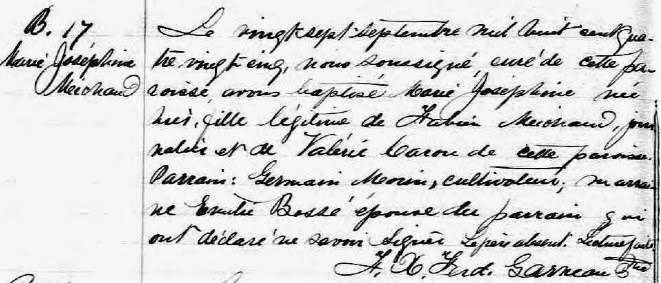 B. 17
Marie Joséphine
Michaud
Le vingt sept septembre mil huit cent qua-
tre vingt cinq, nous soussigné, curé de cette pa-
roisse, avons baptisé Marie Joséphine née
hier, fille légitime de Fabien Michaud, jour
nalier et de Valérie Caron de cette paroisse.
Parrain: Germain Morin, cultivateur; marrai
ne Emilie Bossé épouse du parrain qui
ont déclaré ne savoir signer. Le père absent. Lecture faite
F. X. Ferd. Garneau Ptre